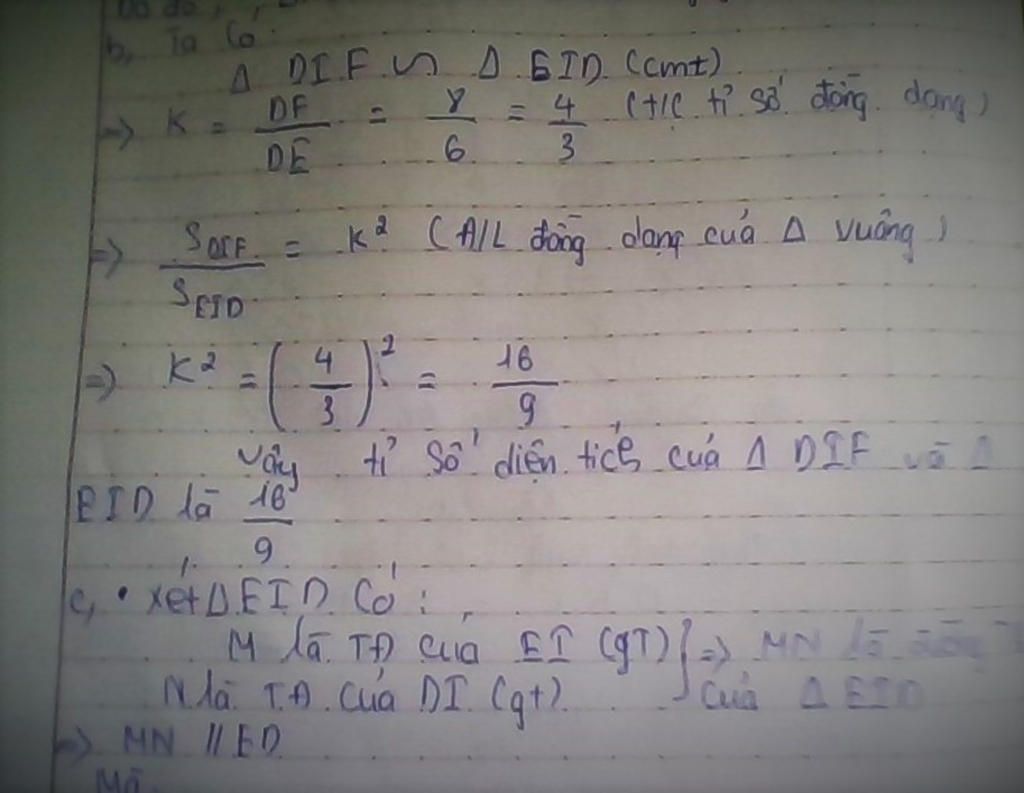 b, Ta có
Δ DIF ∽ Δ EID (cmt)
=> K = DF/DE = 8/6 = 4/3 (t/c tỉ số đồng dạng)
=> S_DIF/S_EID = K² (A/L đồng dạng của Δ vuông)
=> K² = (4/3)² = 16/9
Vậy tỉ số diện tích của Δ DIF và Δ
EID là 16/9
c, • xét Δ EID Có :
M là TĐ của EI (gT) } => MN là đường
N là TĐ của DI (gt) của Δ EID
=> MN // ED
Mà